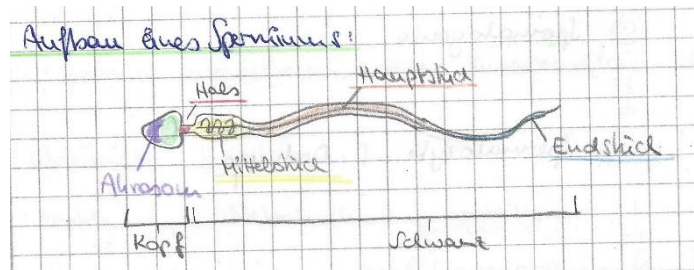 Aufbau eines Spermiums:
Hauptstück
Hals
Endstück
Mittelstück
Akrosom
Kopf
Schwanz